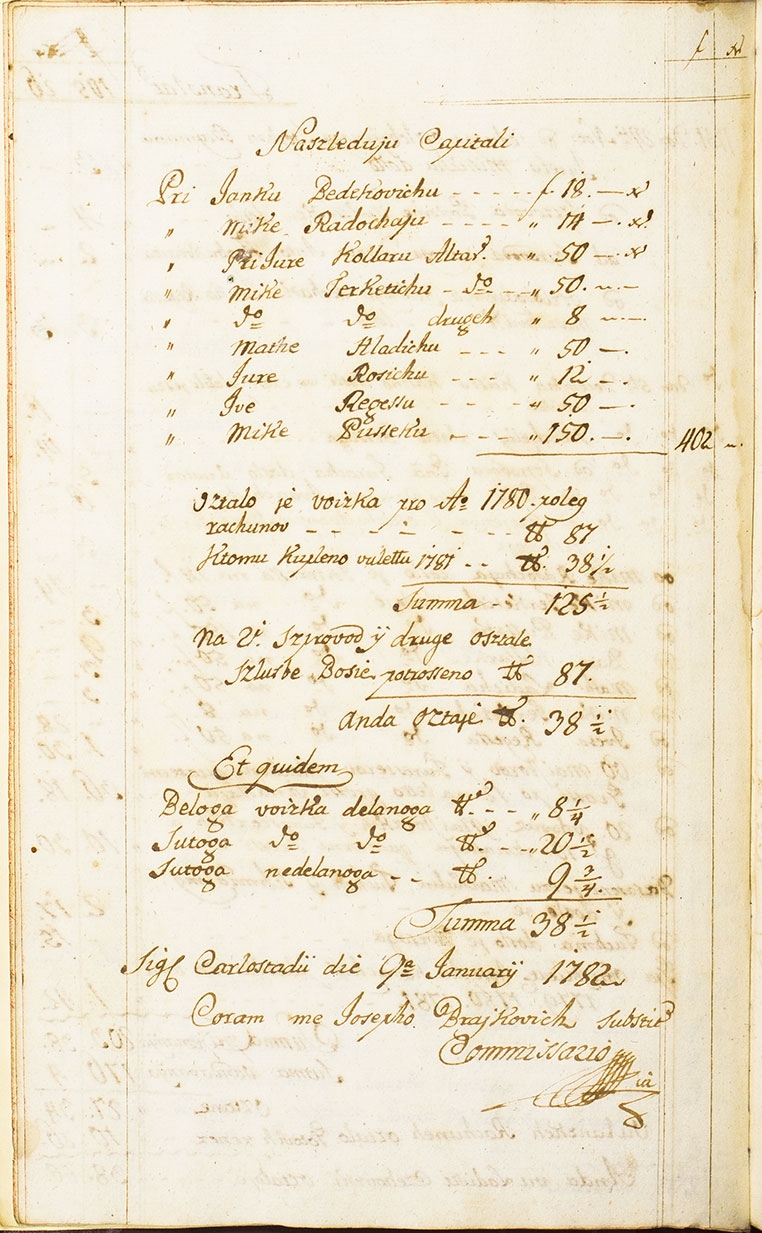 f x
Naszleduju Capitali
Pri Janku Bedekovichu - - - - - f 18. — x
" Mike Radochaju - - - - " 14 —. x.
" Pri Jure Kollaru Altar. " 50 — x
" Mike Terketichu - do - - " 50. - . -
" do do drugeh " 8 - . -
" Mathe Aladichu - - - " 50 —.
" Jure Rosichu - - - " 12 - .
" Ive Regessu - - - " 50 —.
" Mike Pusseku - - - " 150. —. 402 - .
Osztalo je voizka pro Ao 1780. poleg
rachunov - - - - - - - ℔ 87
Ktomu kupleno vulettu 1781 - - ℔. 38 1/2
Summa - 125 1/2
Na 21. szprovod ÿ druge osztale
szlusbe Bosie potrosseno ℔ 87.
anda osztaje ℔. 38 1/2
Et quidem
Beloga voizka delanoga ℔. - - " 8 1/4
Sutoga do do ℔. - - " 20 1/2
Sutoga nedelanoga - - ℔. 9 3/4.
Summa 38 1/2
Sigl Carlostadÿ die 9a Januarÿ 1782
Coram me Josepho Brajkovich substit
Commissario